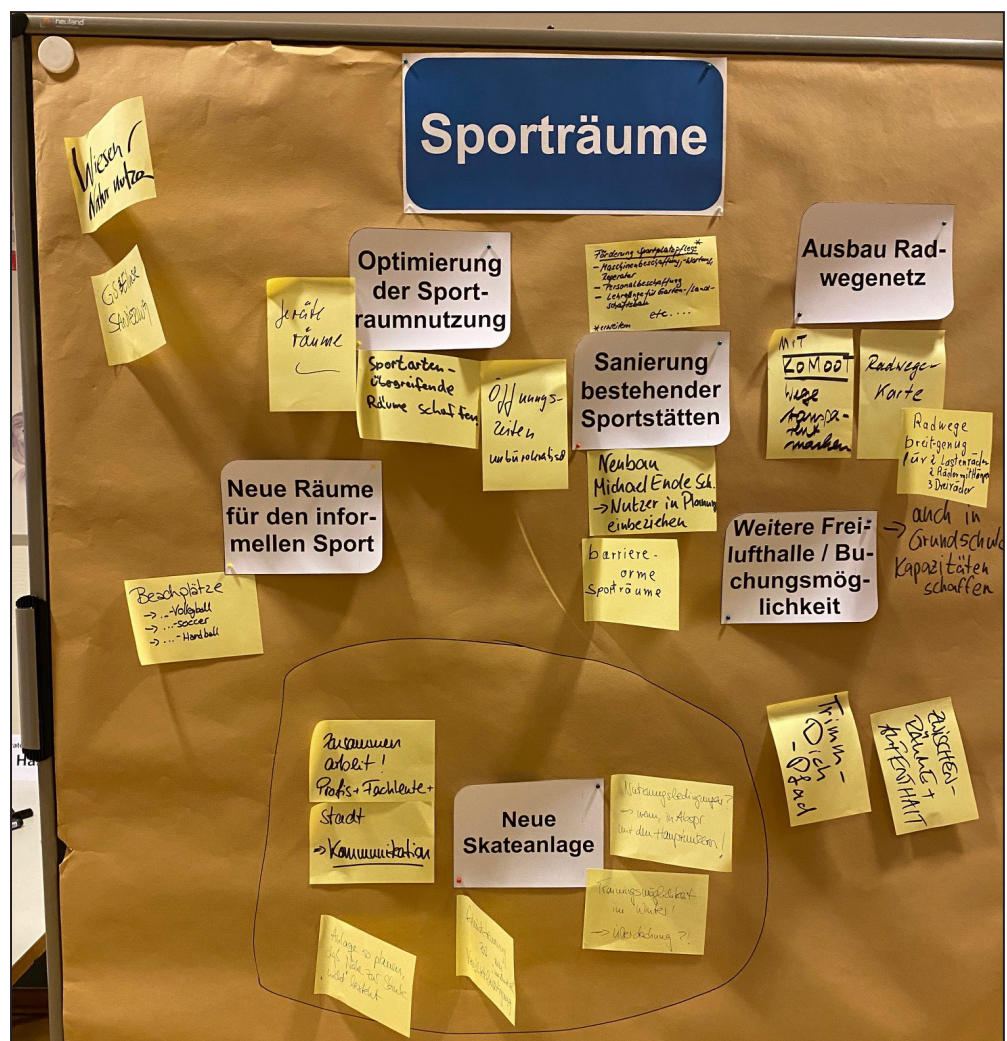 neuland
Sporträume
Wiesen /
Natur nutzen
Optimierung
der Sport-
raumnutzung
Geräte
räume
Sportarten-
übergreifende
Räume schaffen
Öffnungs-
zeiten
unbürokratisch
Förderung Sportplatzpflege*
- Maschinenbeschaffung, -Wartung,
- Personalbeschaffung
- Lehrgänge für Garten-/Land-
schaftsbau
etc....
*erweitern
Sanierung
bestehender
Sportstätten
Neubau
Michael Ende Sch.
→ Nutzer in Planung
einbeziehen
barriere-
arme
Sporträume
Ausbau Rad-
wegenetz
Mit
KOMOOT
Wege
transpa-
rent
machen
Radwege-
Karte
Radwege
breit genug
für 2 Lastenräder
2 Räder mit Hänger
3 Dreiräder
Neue Räume
für den infor-
mellen Sport
Beachplätze
→ ...-Volleyball
→ ...-soccer
→ ...-Handball
Weitere Frei-
lufthalle / Bu-
chungsmög-
lichkeit
→ auch in
Grundschule
Kapazitäten
schaffen
Trimm-
Dich
-Pfad
ZWISCHEN-
RÄUME +
AUFENTHALT
Neue
Skateanlage
Zusammen
arbeit!
Profis + Fachleute +
Stadt
→ Kommunikation
Nutzungsbedingungen?
→ wenn, in Abspr.
mit den Hauptnutzern!
Trainingsmöglichkeit
im Winter!
→ Überdachung?!
Anlage so planen,
besteht